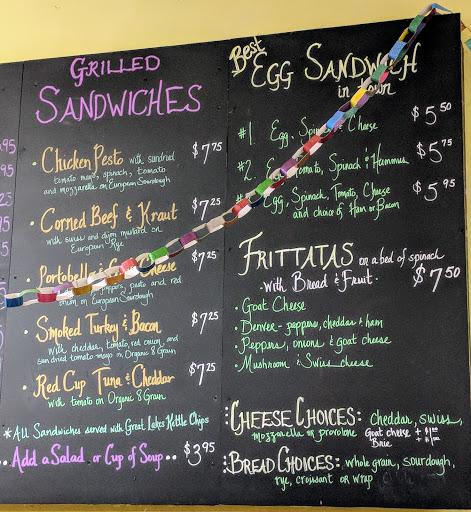 GRILLED
SANDWICHES
• Chicken Pesto with sundried $7.75
tomato mayo, spinach, tomato
and mozzarella on European Sourdough
• Corned Beef & Kraut $7.25
with swiss and dijon mustard on
European Rye
Portobello & Cheese $7.25
peppers, pesto and red
onion on European Sourdough
• Smoked Turkey & Bacon $7.25
with cheddar, tomato, red onion, and
sun dried tomato mayo on Organic 8 Grain
• Red Cup Tuna & Cheddar $7.25
with tomato on Organic 8 Grain
*All Sandwiches served with Great Lakes Kettle Chips
•• Add a Salad or Cup of Soup •• $3.95
Best
EGG SANDWICH
in Town
#1. Egg, Spinach & Cheese $5.50
#2. Tomato, Spinach & Hummus $5.75
Egg, Spinach, Tomato, Cheese $5.95
and choice of Ham or Bacon
FRITTATAS on a bed of spinach
- with Bread & Fruit - $7.50
• Goat Cheese
• Denver - peppers, cheddar & ham
• Peppers, onions & goat cheese
• Mushroom & Swiss cheese
CHEESE CHOICES: cheddar, swiss,
mozzarella or provolone Goat cheese
Brie
BREAD CHOICES: whole grain, sourdough,
rye, croissant or wrap